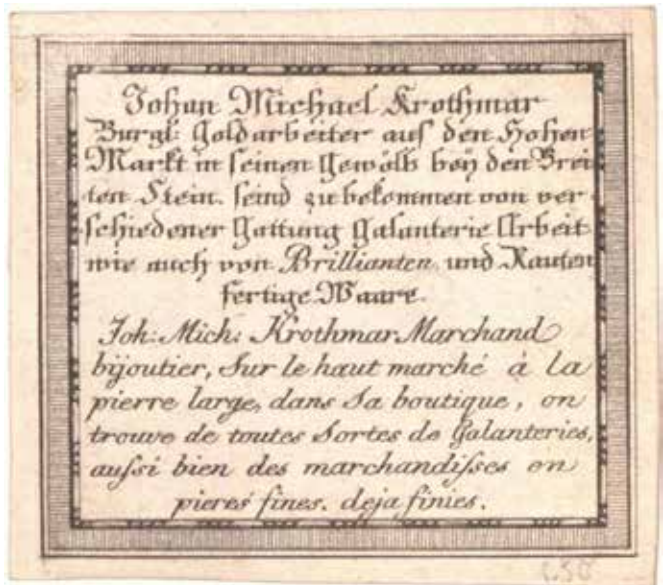 Johan Michael Krothmar
Burgl: Goldarbeiter auf den Hohen
Markt in seinen Gewölb beÿ den Brei
ten Stein. seind zu bekommen von ver
schiedener Gattung Galanterie Arbeit
wie auch von Brillianten, und Rauten
fertige Waare.
Joh: Mich: Krothmar Marchand
bijoutier, Sur le haut marché à la
pierre large, dans Sa boutique, on
trouve de toutes Sortes de Galanteries,
aussi bien des marchandisses en
pieres fines. deja finies.